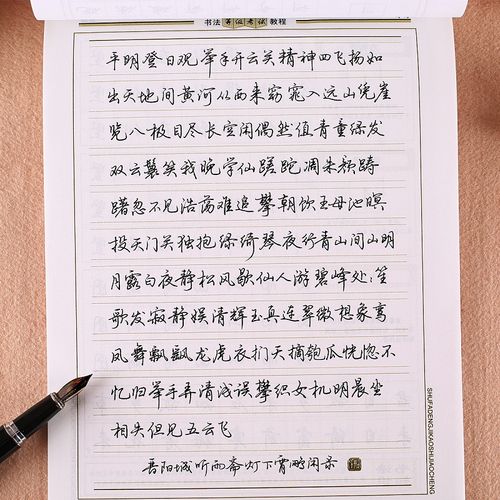 书法等级考试教程
平明登日观举手开云关精神四飞扬如
出天地间黄河从西来窈窕入远山凭崖
览八极目尽长空闲偶然值青童绿发
双云鬟笑我晚学仙蹉跎凋朱颜踌
躇忽不见浩荡难追攀朝饮王母池暝
投天门关独抱绿绮琴夜行青山间山明
月露白夜静松风歇仙人游碧峰处:笙
歌发寂静娱清辉玉真连翠微想象鸾
凤舞飘飖龙虎衣扪天摘匏瓜恍惚不
忆归举手弄清浅误攀织女机明晨坐
相失但见五云飞
晋阳城听雨斋灯下霄鹏闲录
SHUFADENGJIKAOSHIJIAOCHENG